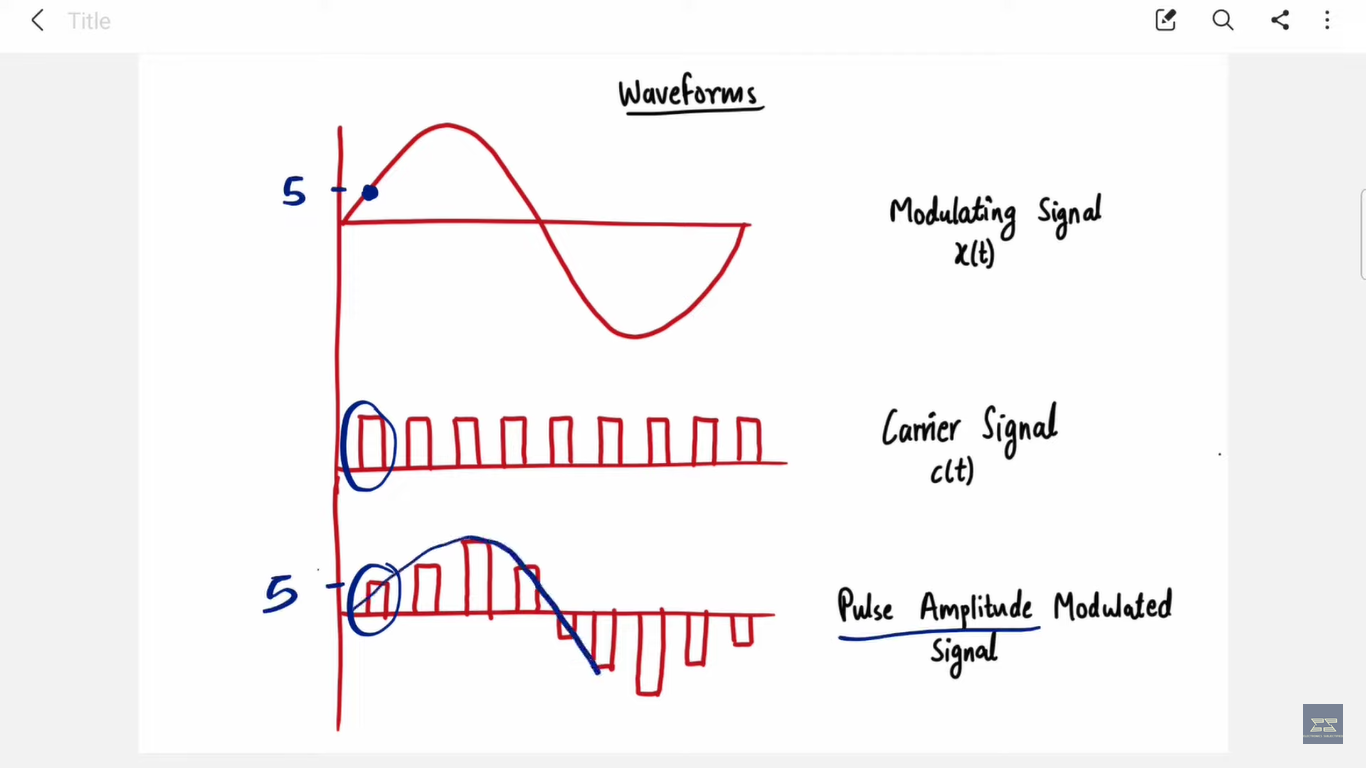 Title
Waveforms
5
Modulating Signal
x(t)
Carrier Signal
c(t)
5
Pulse Amplitude Modulated
Signal